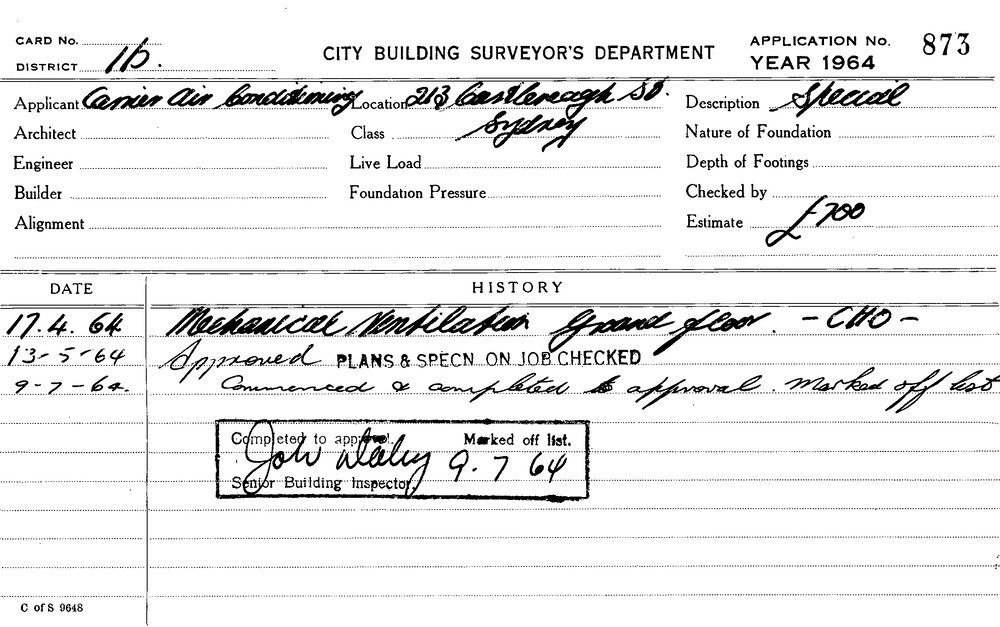 CARD No.
DISTRICT 1b.
CITY BUILDING SURVEYOR'S DEPARTMENT
APPLICATION No. 873
YEAR 1964
Applicant Carrier Air Conditioning Location 213 Castlereagh St. Description Special
Architect Class Sydney Nature of Foundation
Engineer Live Load Depth of Footings
Builder Foundation Pressure Checked by
Alignment Estimate £700
DATE HISTORY
17.4.64 Mechanical Ventilation Ground floor. - CHO -
13-5-64 Approved PLANS & SPECN. ON JOB CHECKED
9-7-64. Commenced & completed to approval. Marked off list
Completed to approval. Marked off list.
9.7 64
Senior Building Inspector.
C of S 9648